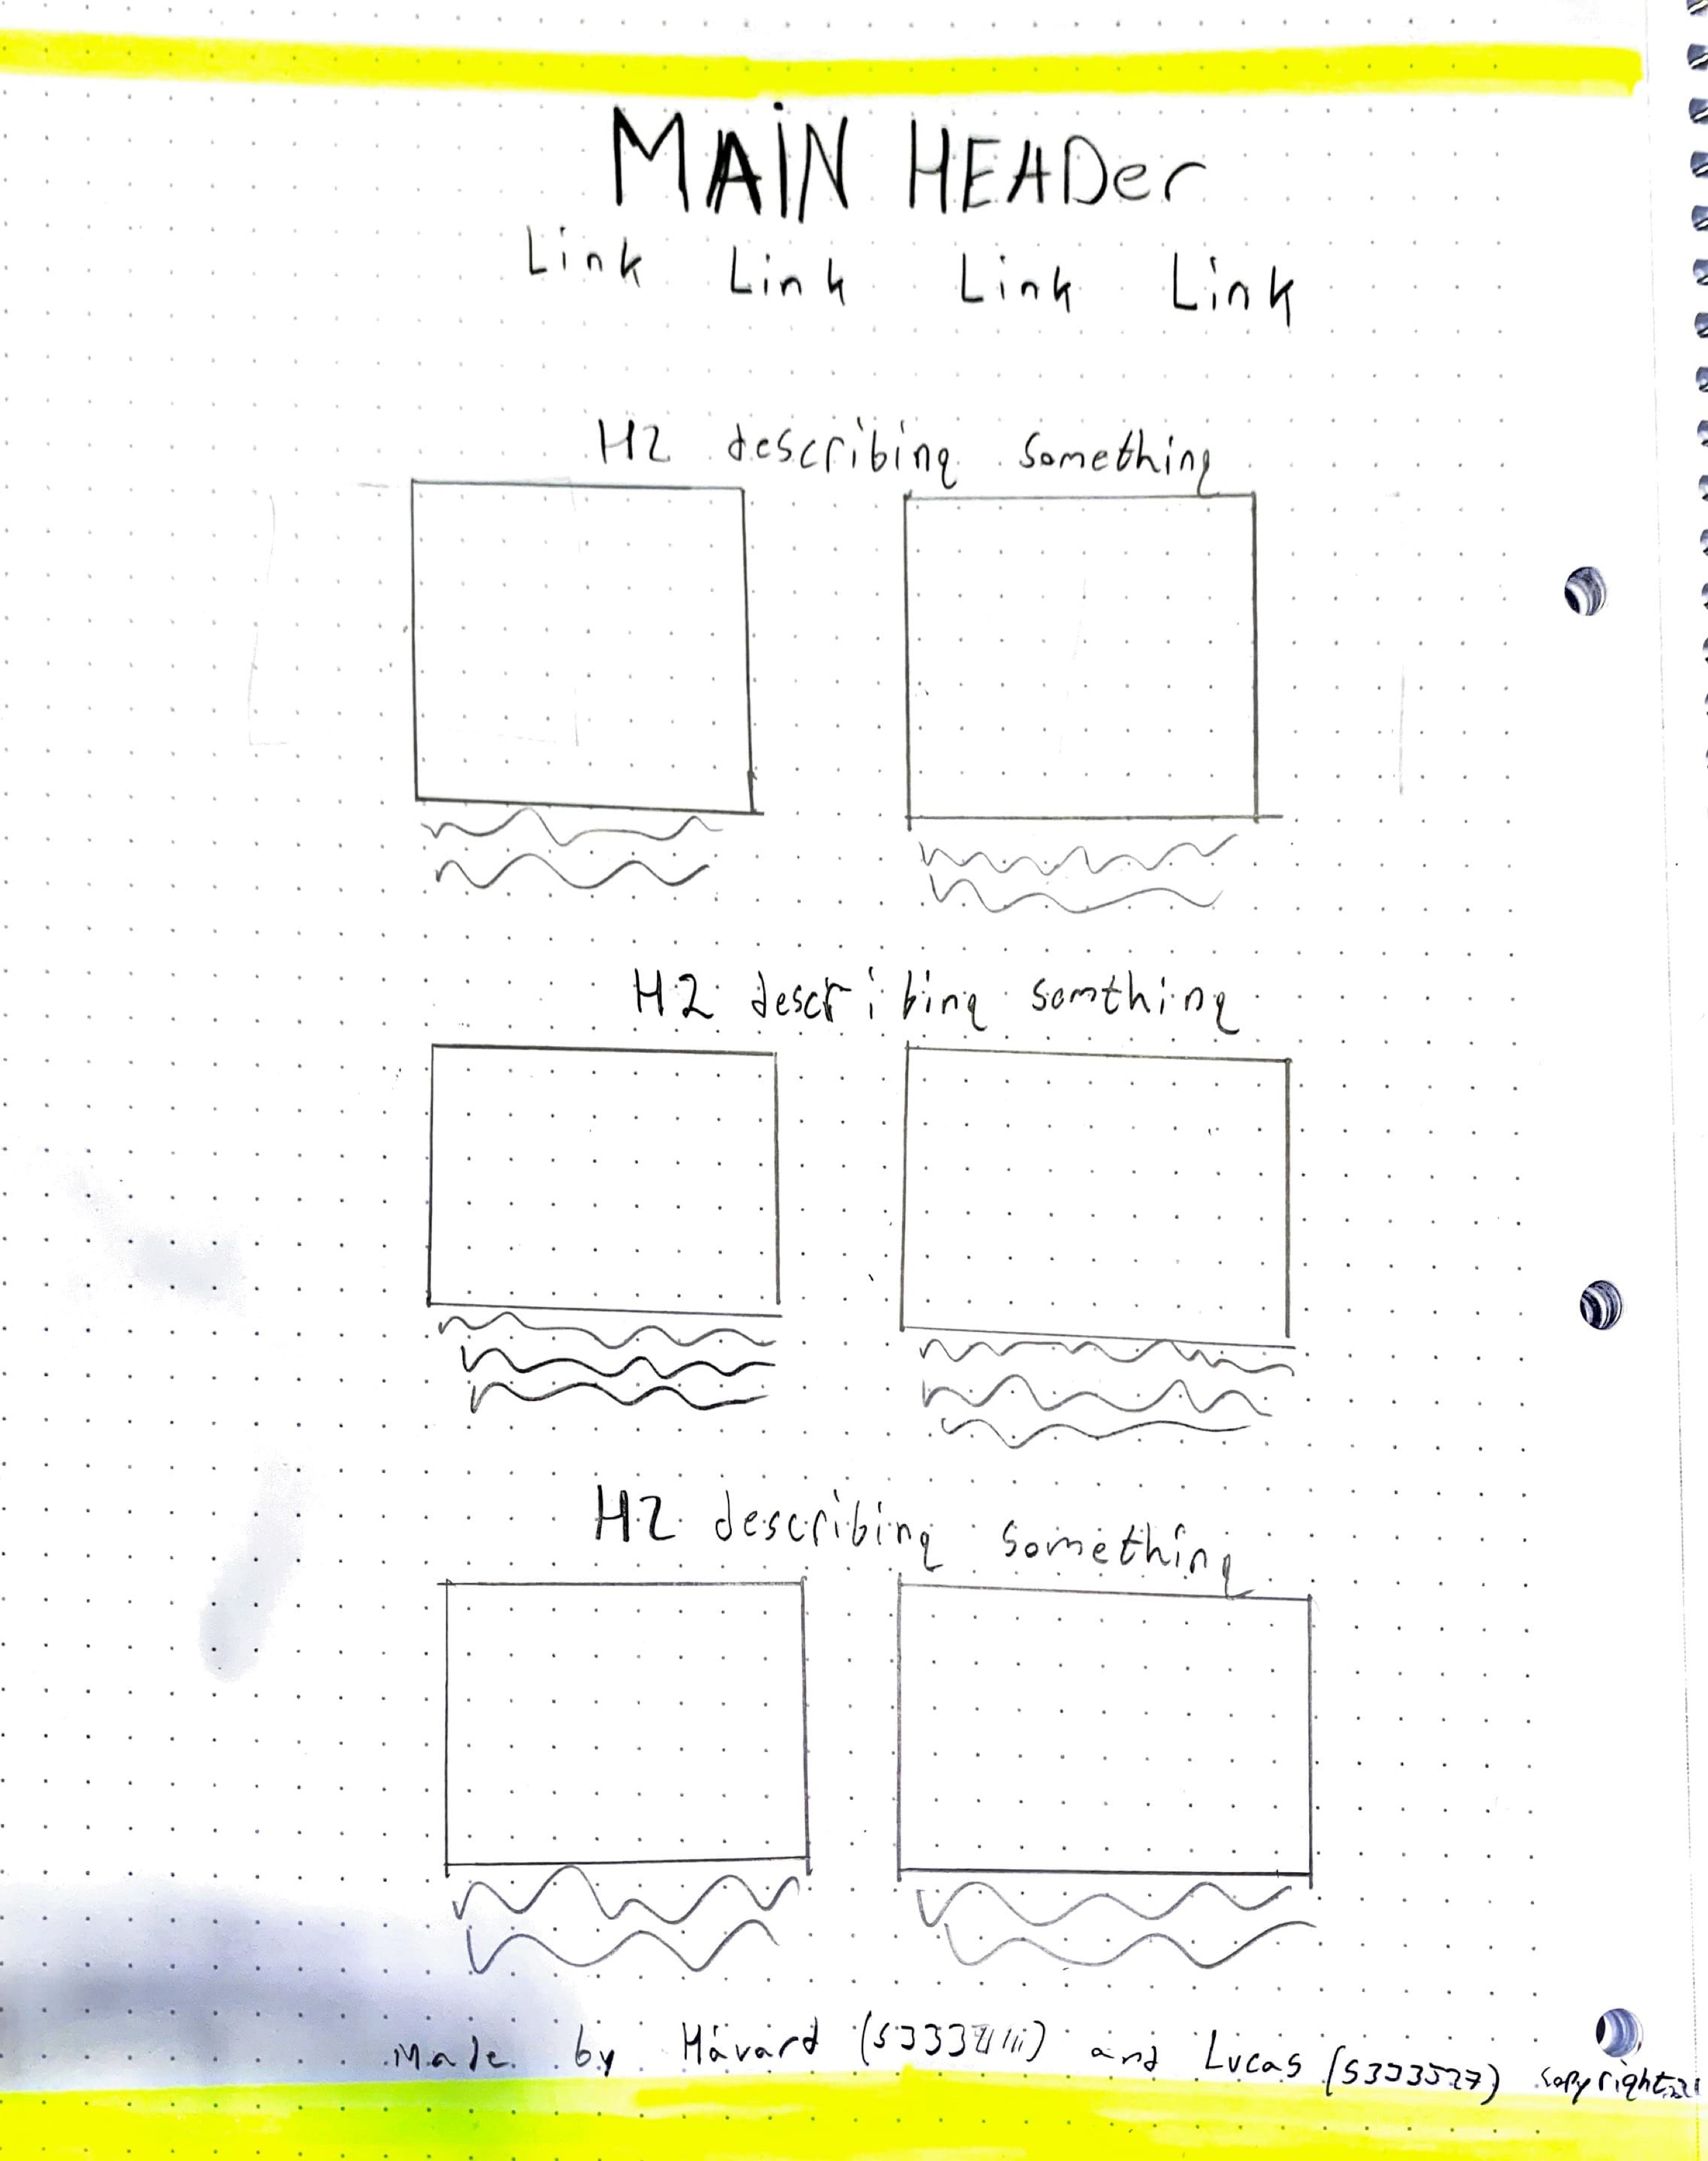 MAIN HEADer
Link Link Link Link
H2 describing something
H2 describing somthing
H2 describing something
Made by Håvard and Lucas (S333527) copyright